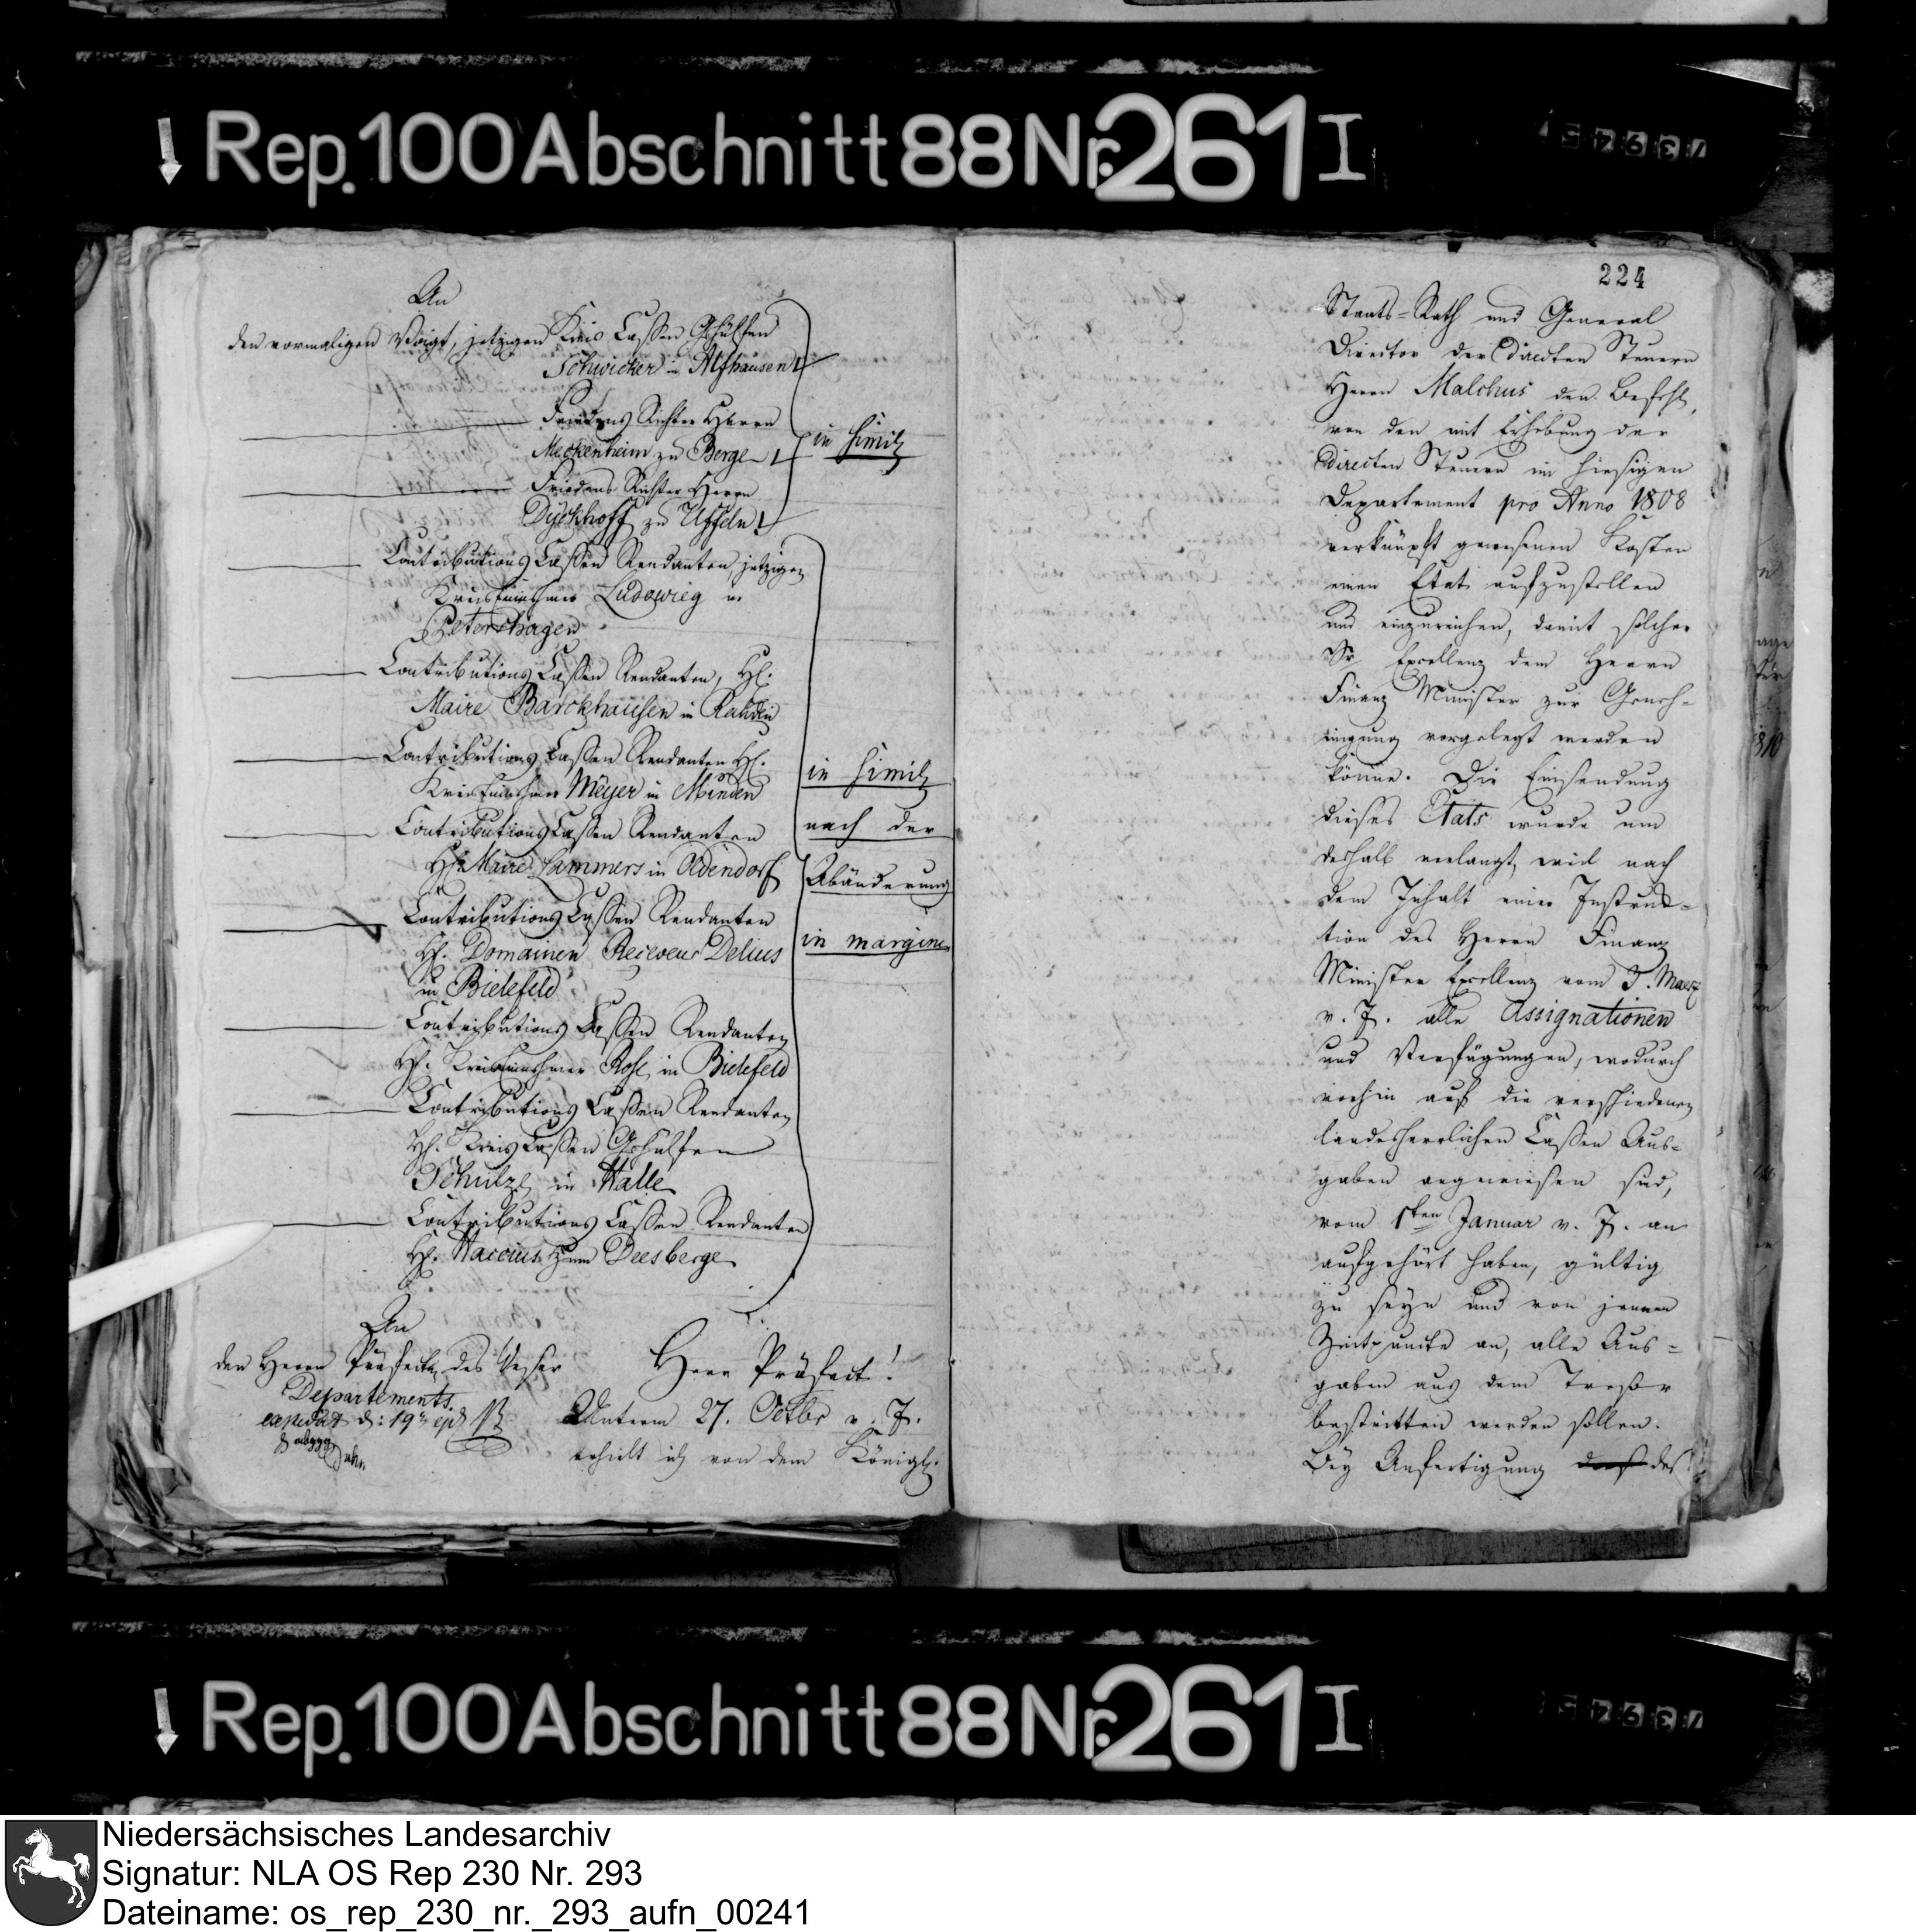 Rep. 100 Abschnitt 88 Nr. 261 I
An
den vormaligen Voigt, jetzigen Kreis Cassen Gehülfen
Schwicker in Alfhausen
Friedens Richter Herrn
Meckenheim zu Berge
in simili
Friedens Richter Herrn
Dyckhoff zu Uffeln
Contributions Cassen Rendanten, jetzigen
Kreiseinnehmer Ludowieg in
Petershagen
Contributions Cassen Rendanten, H.
Maire Barckhausen in Rahden
Contributions Cassen Rendanten H.
Kreiseinnehmer Meyer in Minden
Contributions Cassen Rendanten
H. Maire Lammers in Oldendorf
Contributions Cassen Rendanten
H. Domainen Receveur Delius
in Bielefeld
Contributions Cassen Rendanten
H. Kreiseinnehmer Rose in Bielefeld
Contributions Cassen Rendanten
H. Kreis Cassen Gehülfen
Schulze in Halle
Contributions Cassen Rendanten
H. zum Deesberge
in simili
nach der
Abänderung
in margine
An
den Herrn Präfecten des Weser
Departements.
Herr Präfect!
Unterm 27. Octbr v. J.
erhielt ich von dem Königl.
224
Staats-Rath und General
Director der directen Steuern
Herrn Malchus den Befehl,
von den mit Erhebung der
directen Steuern im hiesigen
Departement pro Anno 1808
verknüpft gewesenen Kosten
einen Etat aufzustellen
und einzureichen, damit solcher
Sr Excellenz dem Herrn
Finanz Minister zur Geneh-
migung vorgelegt werden
könne. Die Einsendung
dieses Etats wurde um
deshalb verlangt, weil nach
dem Inhalt einer Instruc-
tion des Herrn Finanz
Minister Excellenz vom 3. Maerz
v. J. alle Assignationen
und Verfügungen, wodurch
vorhin auf die verschiedenen
landesherrlichen Cassen Aus-
gaben angewiesen sind,
vom 1sten Januar v. J. an
aufgehört haben, gültig
zu seyn und von jenem
Zeitpuncte an, alle Aus-
gaben aus dem Tresor
bestritten werden sollen.
Bey Anfertigung des
Rep. 100 Abschnitt 88 Nr. 261 I
Niedersächsisches Landesarchiv
Signatur: NLA OS Rep 230 Nr. 293
Dateiname: os_rep_230_nr._293_aufn_00241